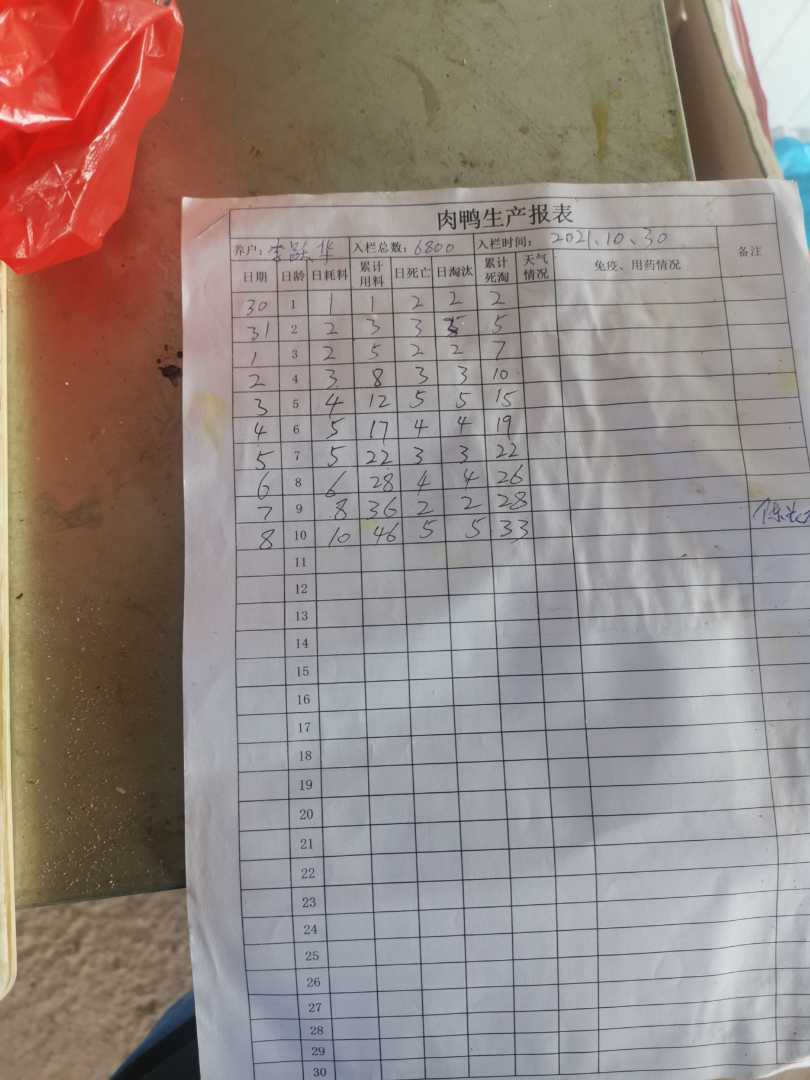 肉鸭生产报表
养户：李跃华 入栏总数：6800 入栏时间：2021.10.30 备注
日期 日龄 日耗料 累计用料 日死亡 日淘汰 累计死淘 天气情况 免疫、用药情况
30 1 1 1 2 2 2
31 2 2 3 3 3 5
1 3 2 5 2 2 7
2 4 3 8 3 3 10
3 5 4 12 5 5 15
4 6 5 17 4 4 19
5 7 5 22 3 3 22
6 8 6 28 4 4 26
7 9 8 36 2 2 28
8 10 10 46 5 5 33
11
12
13
14
15
16
17
18
19
20
21
22
23
24
25
26
27
28
29
30